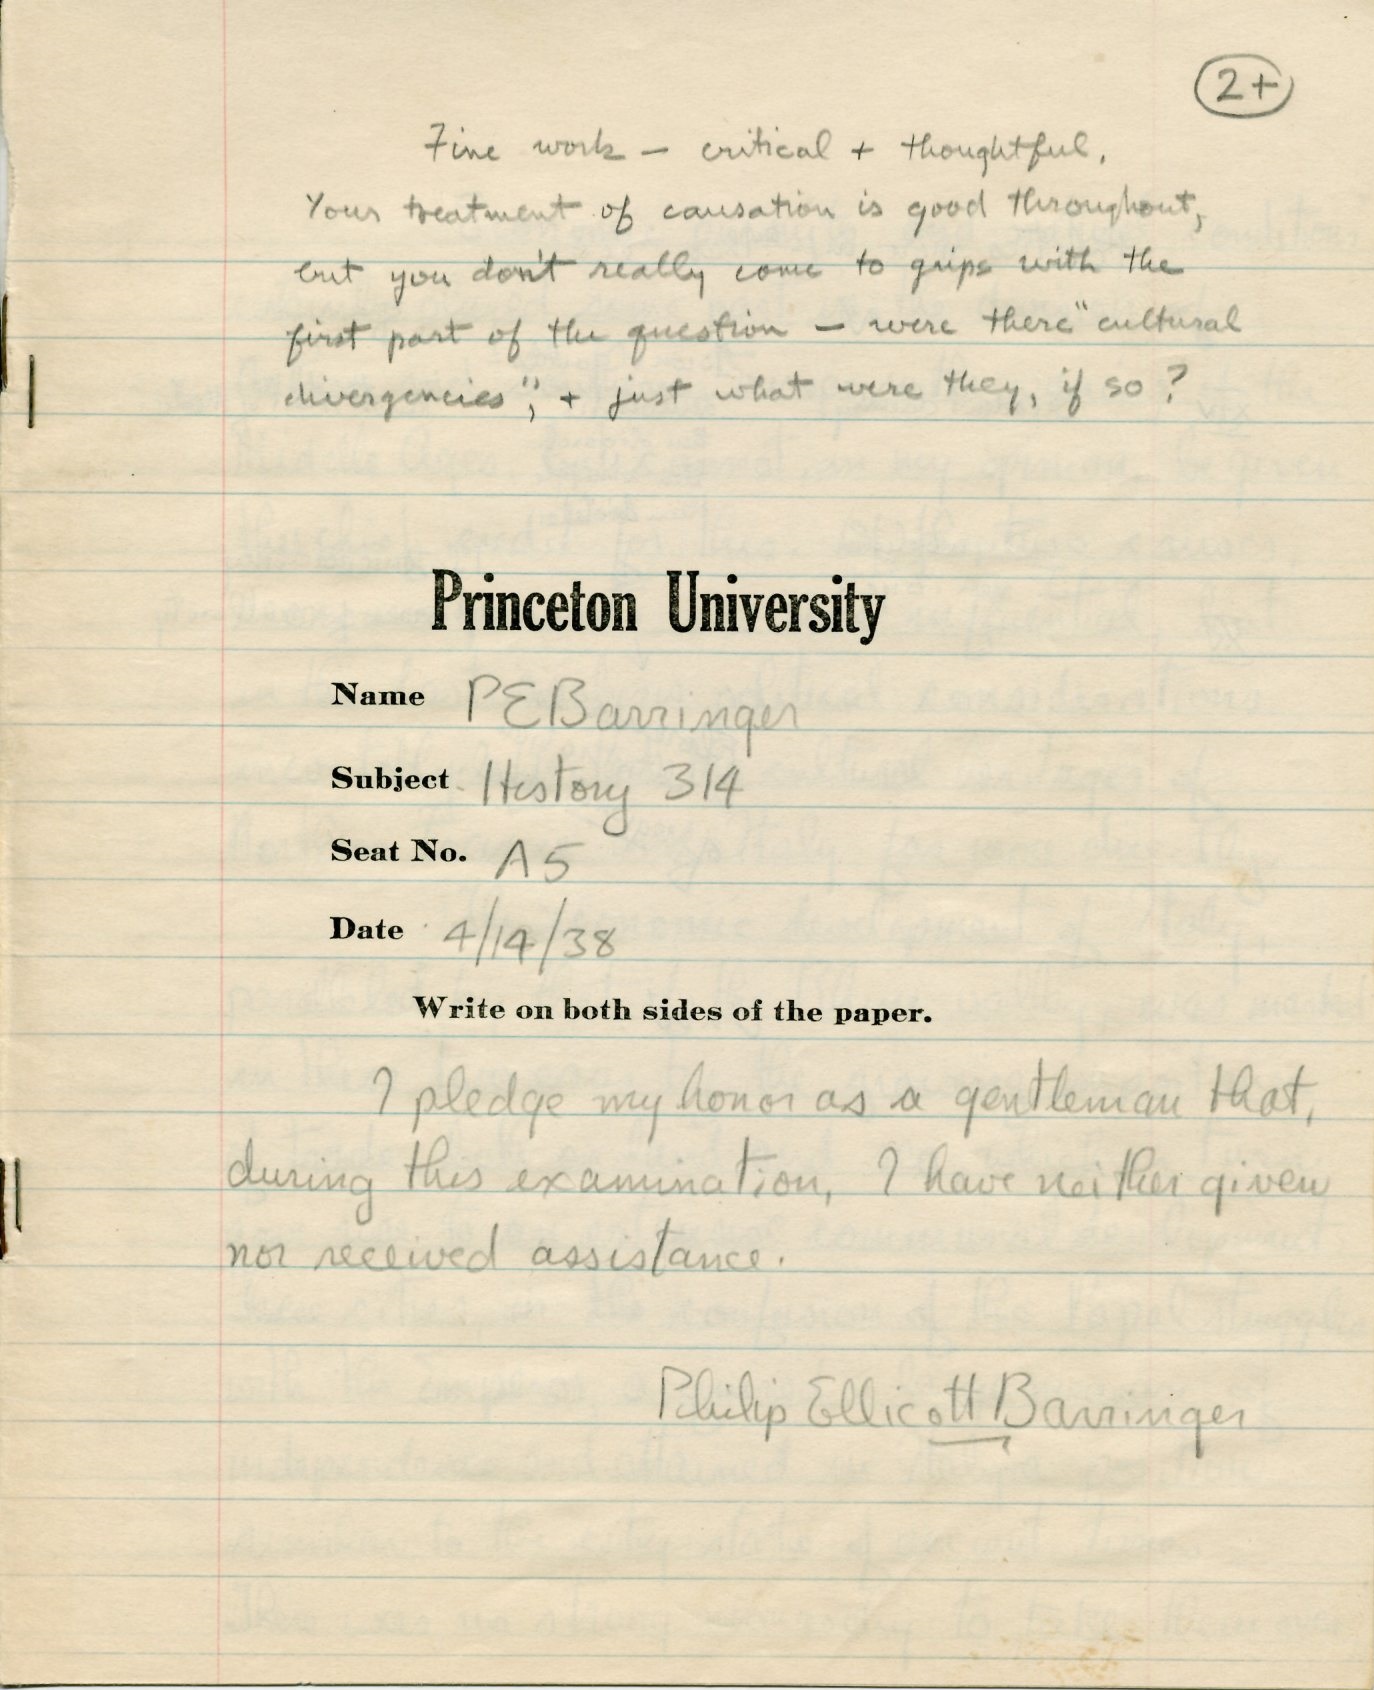 2+
Fine work - critical + thoughtful.
Your treatment of causation is good throughout,
but you don't really come to grips with the
first part of the question - were there "cultural
divergencies", + just what were they, if so?
Princeton University
Name PEBarringer
Subject History 314
Seat No. A5
Date 4/14/38
Write on both sides of the paper.
I pledge my honor as a gentleman that,
during this examination, I have neither given
nor received assistance.
Philip Ellicott Barringer